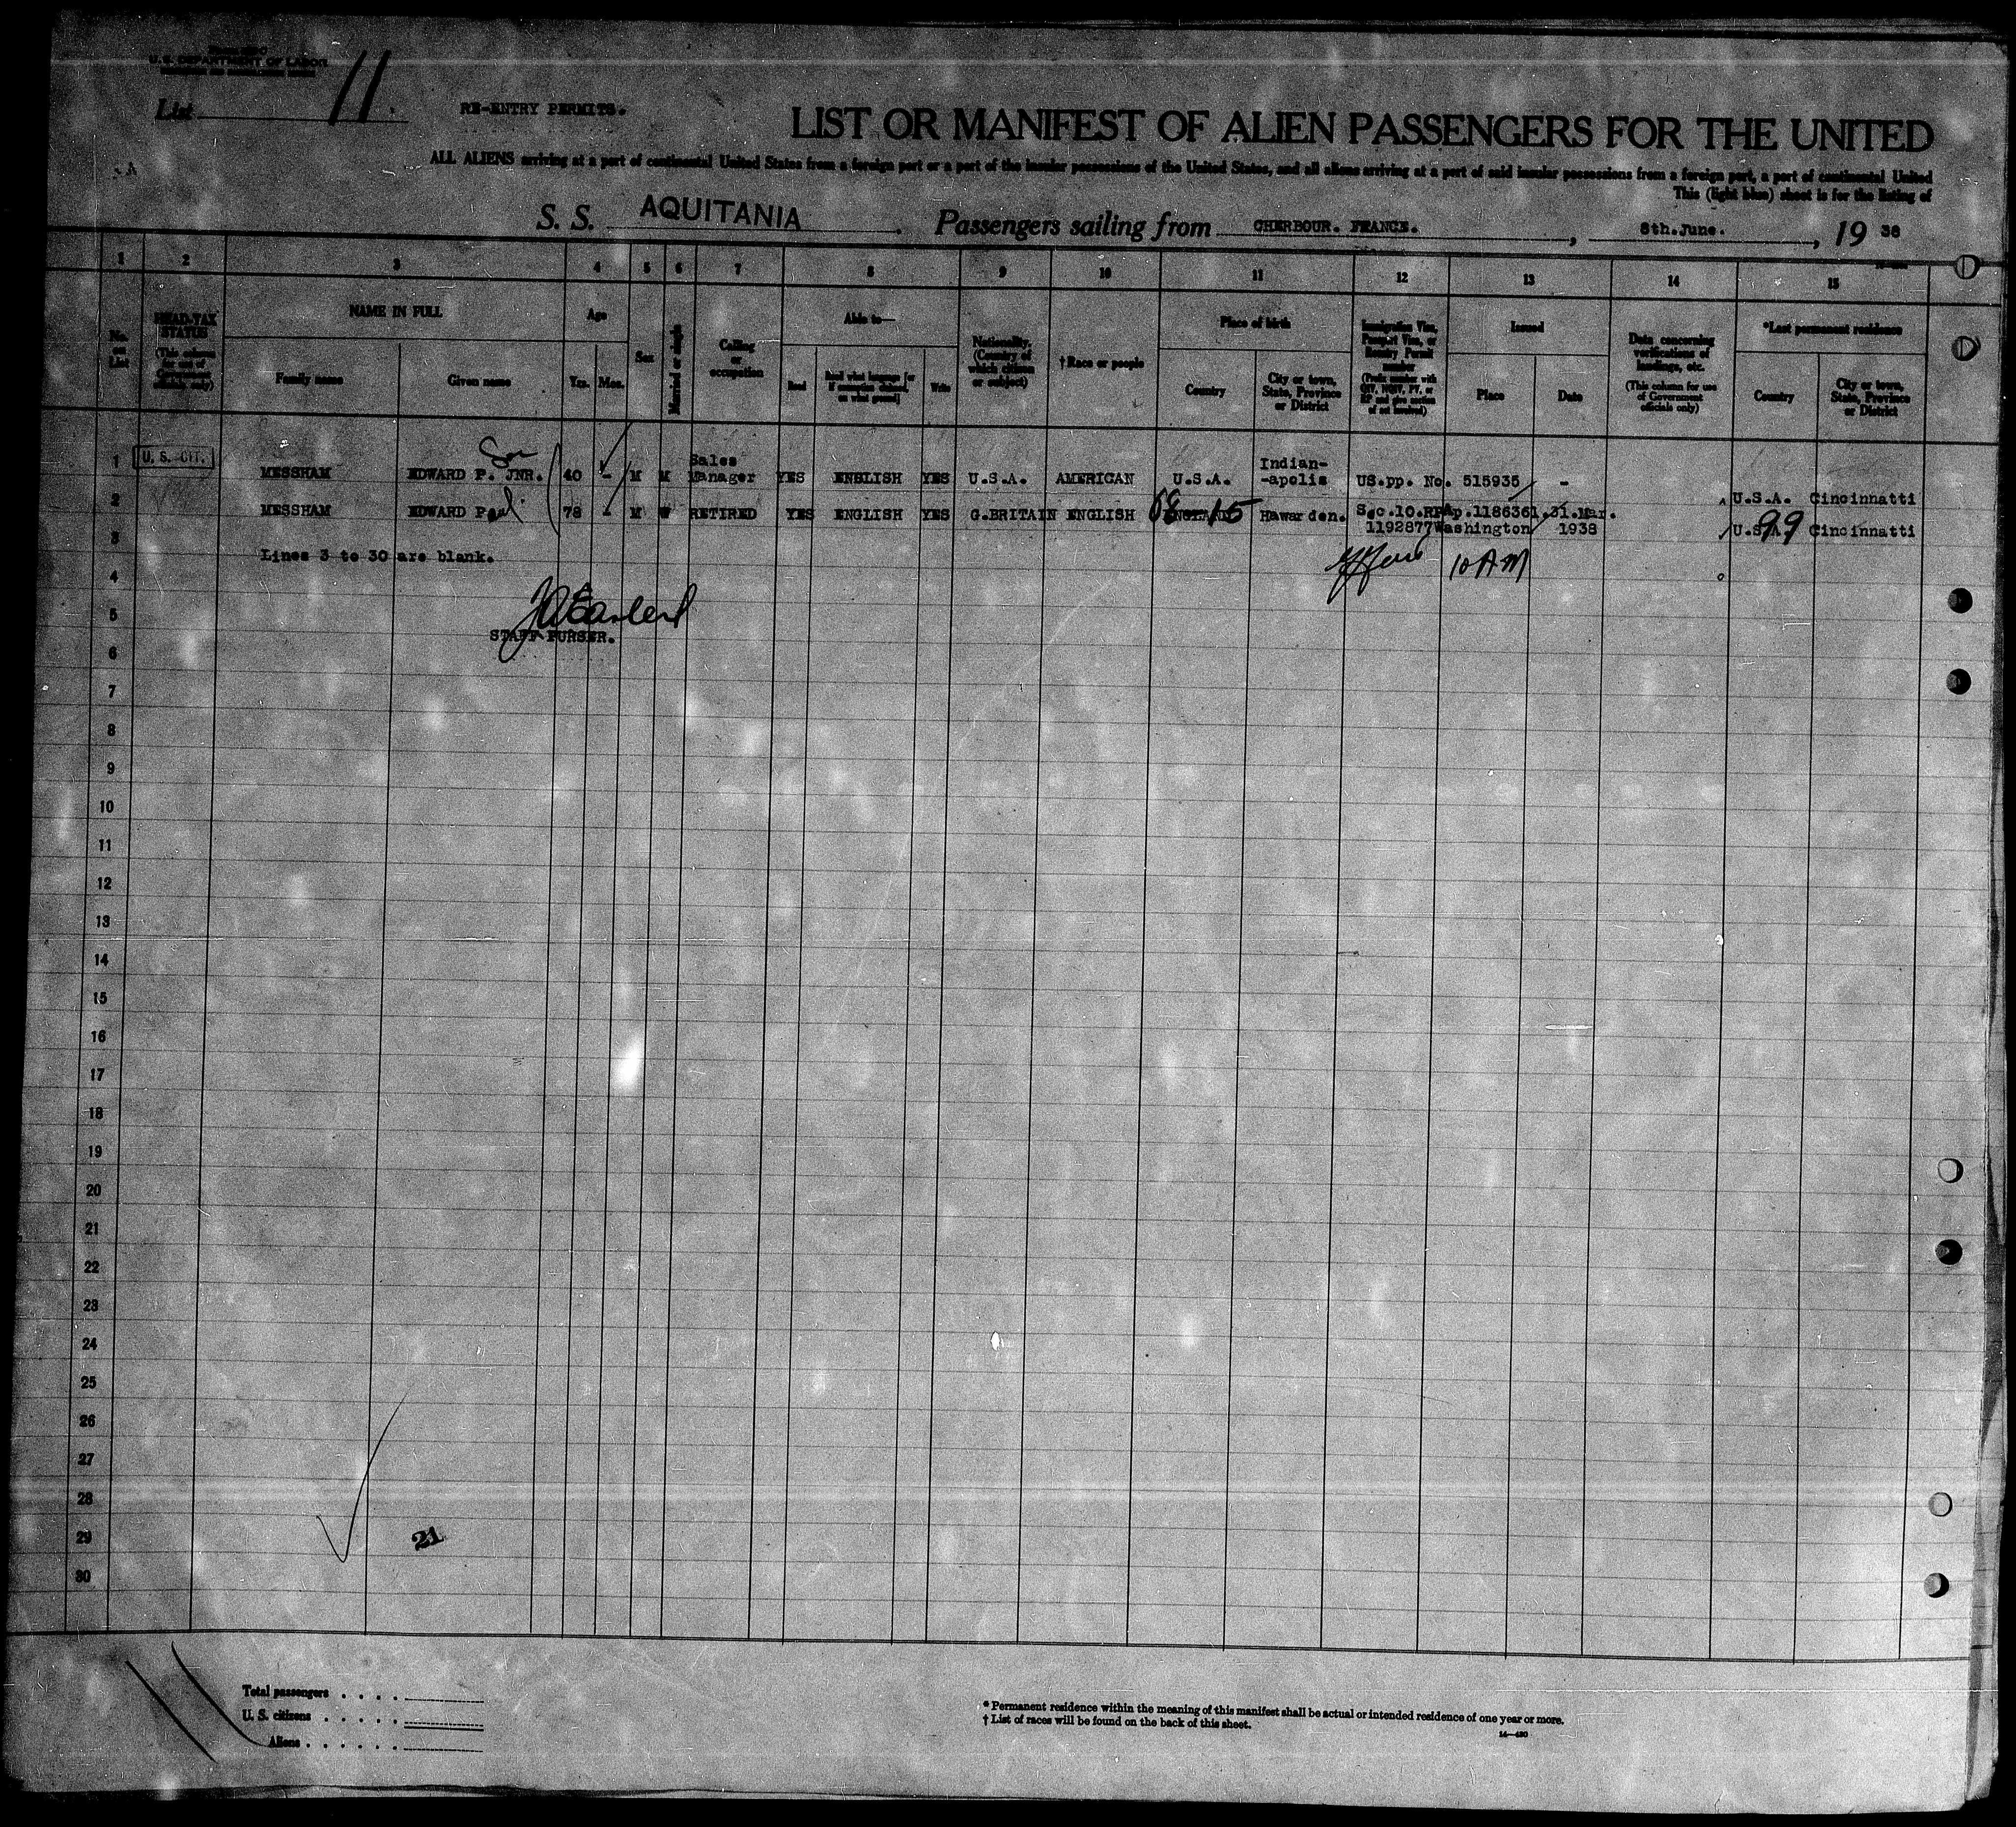 U. S. DEPARTMENT OF LABOR
List 11.
RE-ENTRY PERMITS.
LIST OR MANIFEST OF ALIEN PASSENGERS FOR THE UNITED
ALL ALIENS arriving at a port of continental United States from a foreign port or a port of the insular possessions of the United States, and all aliens arriving at a port of said insular possessions from a foreign port, a port of continental United
This (light blue) sheet is for the listing of
S. S. AQUITANIA. Passengers sailing from CHERBOUR. FRANCE., 8th.June., 19 38
1 2 3 4 5 6 7 8 9 10 11 12 13 14 15
No. on List
HEAD-TAX STATUS
(This column for use of Government officials only)
NAME IN FULL
Family name
Given name
Age
Yrs. Mos.
Sex
Married or single
Calling or occupation
Able to—
Read
Read what language [or if exemption claimed, on what ground]
Write
Nationality. (Country of which citizen or subject)
†Race or people
Place of birth
Country
City or town, State, Province or District
Immigration Visa, Passport Visa, or Reentry Permit number
(Prefix number with QIV, NQIV, PV, or RP and give section of act involved)
Issued
Place
Date
Data concerning verifications of landings, etc.
(This column for use of Government officials only)
*Last permanent residence
Country
City or town, State, Province or District
Son
1 U. S. CIT. MESSHAM EDWARD P. JNR. 40 - M M Sales Manager YES ENGLISH YES U.S.A. AMERICAN U.S.A. Indian-apolis US.pp. No. 515935 - U.S.A. Cincinnatti
2 MESSHAM EDWARD Paul. 78 - M W RETIRED YES ENGLISH YES G.BRITAIN ENGLISH ENGLAND 68-15 Hawarden. Sec.10.RP Ap.1186361.31.Mar.
1192877 Washington 1938 U.S.A. 99 Cincinnatti
3 Lines 3 to 30 are blank.
10 AM
4
5
STAFF PURSER.
6
7
8
9
10
11
12
13
14
15
16
17
18
19
20
21
22
23
24
25
26
27
28
29
21
30
Total passengers
U. S. citizens
Aliens
* Permanent residence within the meaning of this manifest shall be actual or intended residence of one year or more.
† List of races will be found on the back of this sheet.
14—430